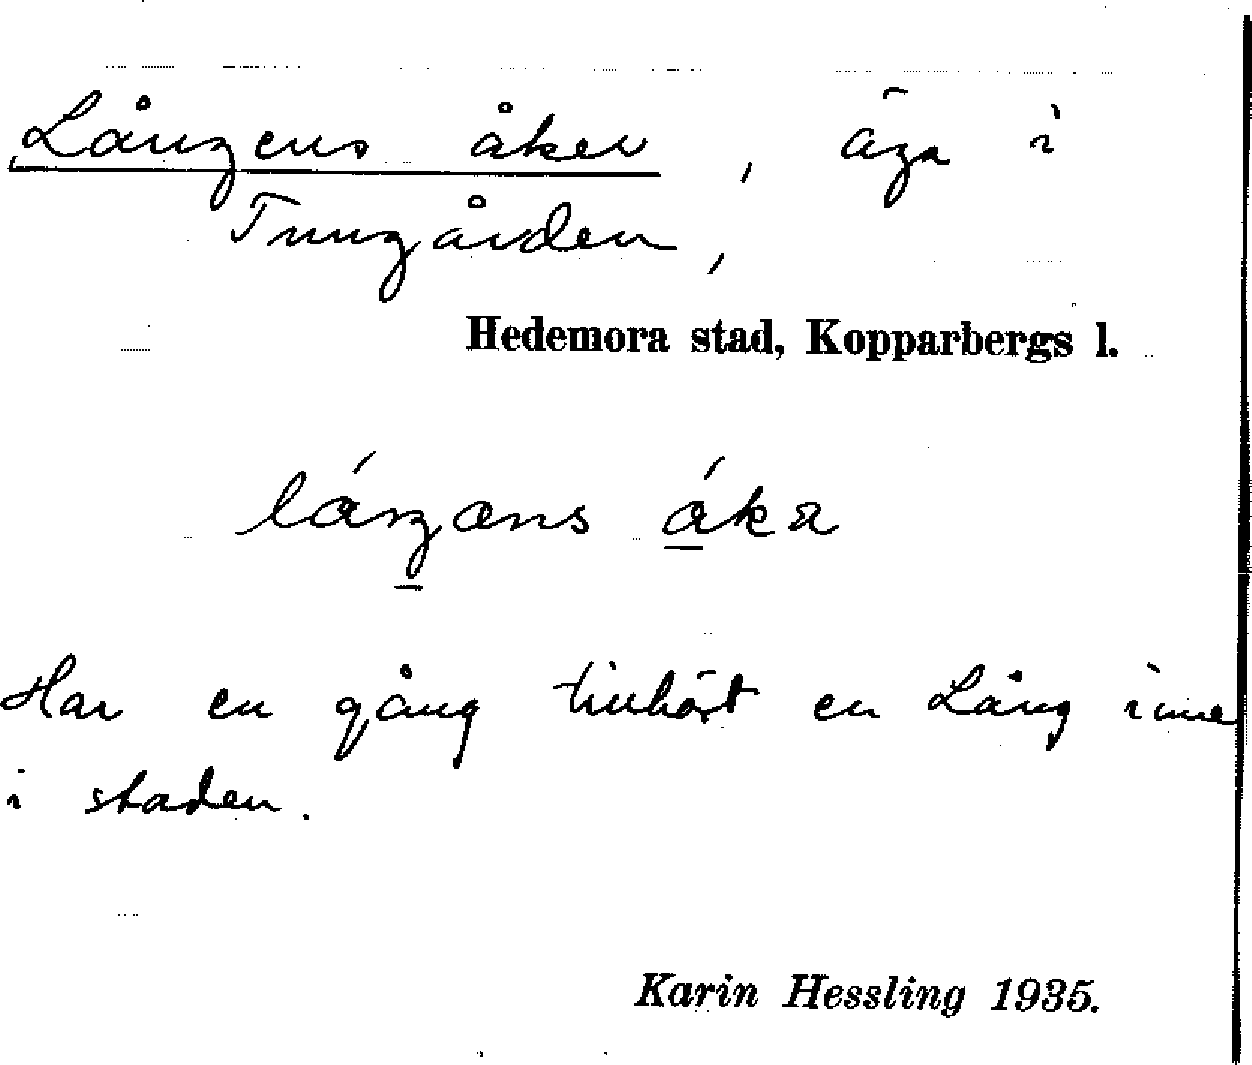 Långens åker, äga i
Tungården,
Hedemora stad, Kopparbergs l.
Har en gång tillhört en Lång inne
i staden.
Karin Hessling 1935.